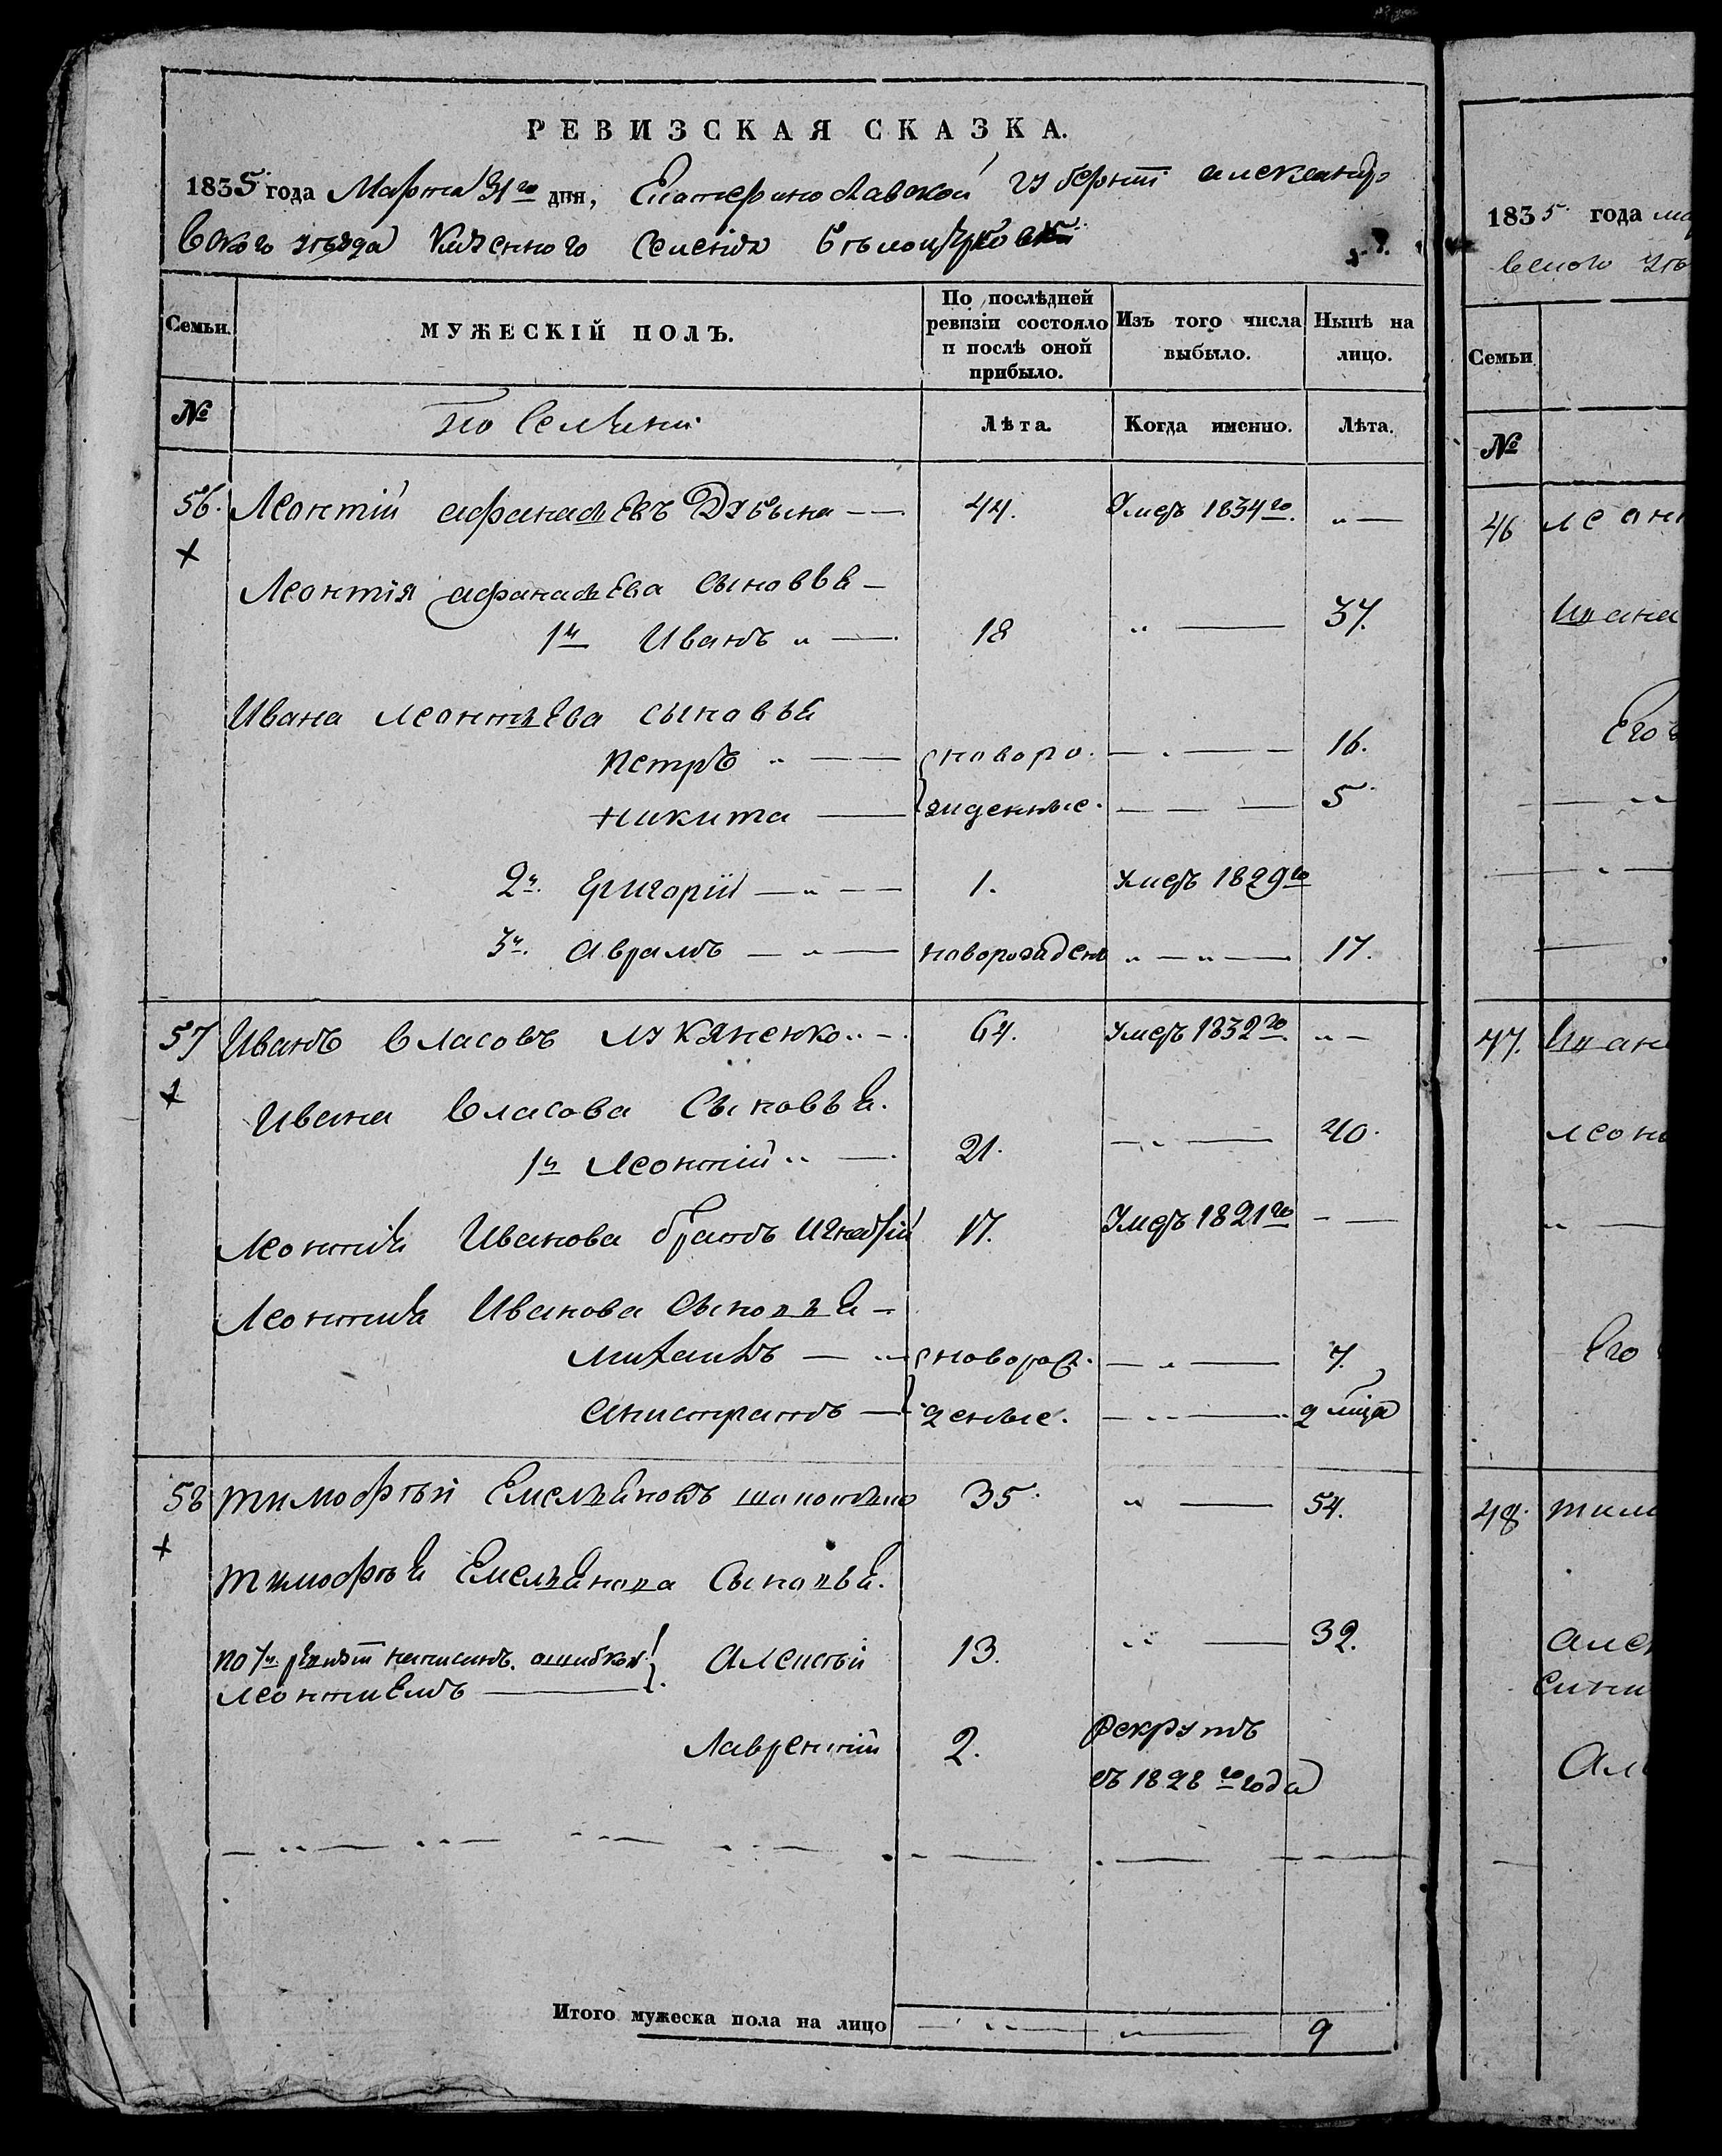 РЕВИЗСКАЯ СКАЗКА.
1835 года Марта 31го дня, Екатеринославской губерніи александр-
вского уѣзда казенного селенія бѣлоцерковки
Семьи.
МУЖЕСКІЙ ПОЛЪ.
По послѣдней ревизіи состояло и послѣ оной прибыло.
Изъ того числа выбыло.
Нынѣ на лицо.
№
По селенію
Лѣта.
Когда именно.
Лѣта.
56. Леонтій афанасьевъ — — 44. Умеръ 1834го. „ —
Леонтія афанасьева сыновья —
1й Иванъ „ — 18 „ — 37.
Ивана леонтьева сыновья
петръ „ — — новоро. — „ — — 16.
никита — жденные. — — — 5
2й. григорій — „ — — 1. умеръ 1829го
3й. аврамъ — „ — новорожденъ „ — „ — 17.
57 Иванъ власовъ луканенко „ — 64. умеръ 1832го. „ —
Ивана власова Сыновья.
1й Леонтій „ — 21. — „ — 40.
Леонтія Иванова братъ игнатій 17. Умеръ 1821го — —
Леонтія Иванова Сыновья —
михаилъ — „ новорож. — „ — 7.
Анистратъ — денные. — „ — 2 мѣца
58 тимофѣй Емельяновъ 35. „ — 54.
тимофѣя Емельянова Сыновья.
по 7й ревизіи написанъ ошибкой Алексѣй 13. „ — 32.
леонтиемъ —
Лаврентій 2. рекрутъ
съ 1828го года
Итого мужеска пола на лицо — „ — „ — 9
1835 года
вского
Семьи
№
46
его
47.
его
48.